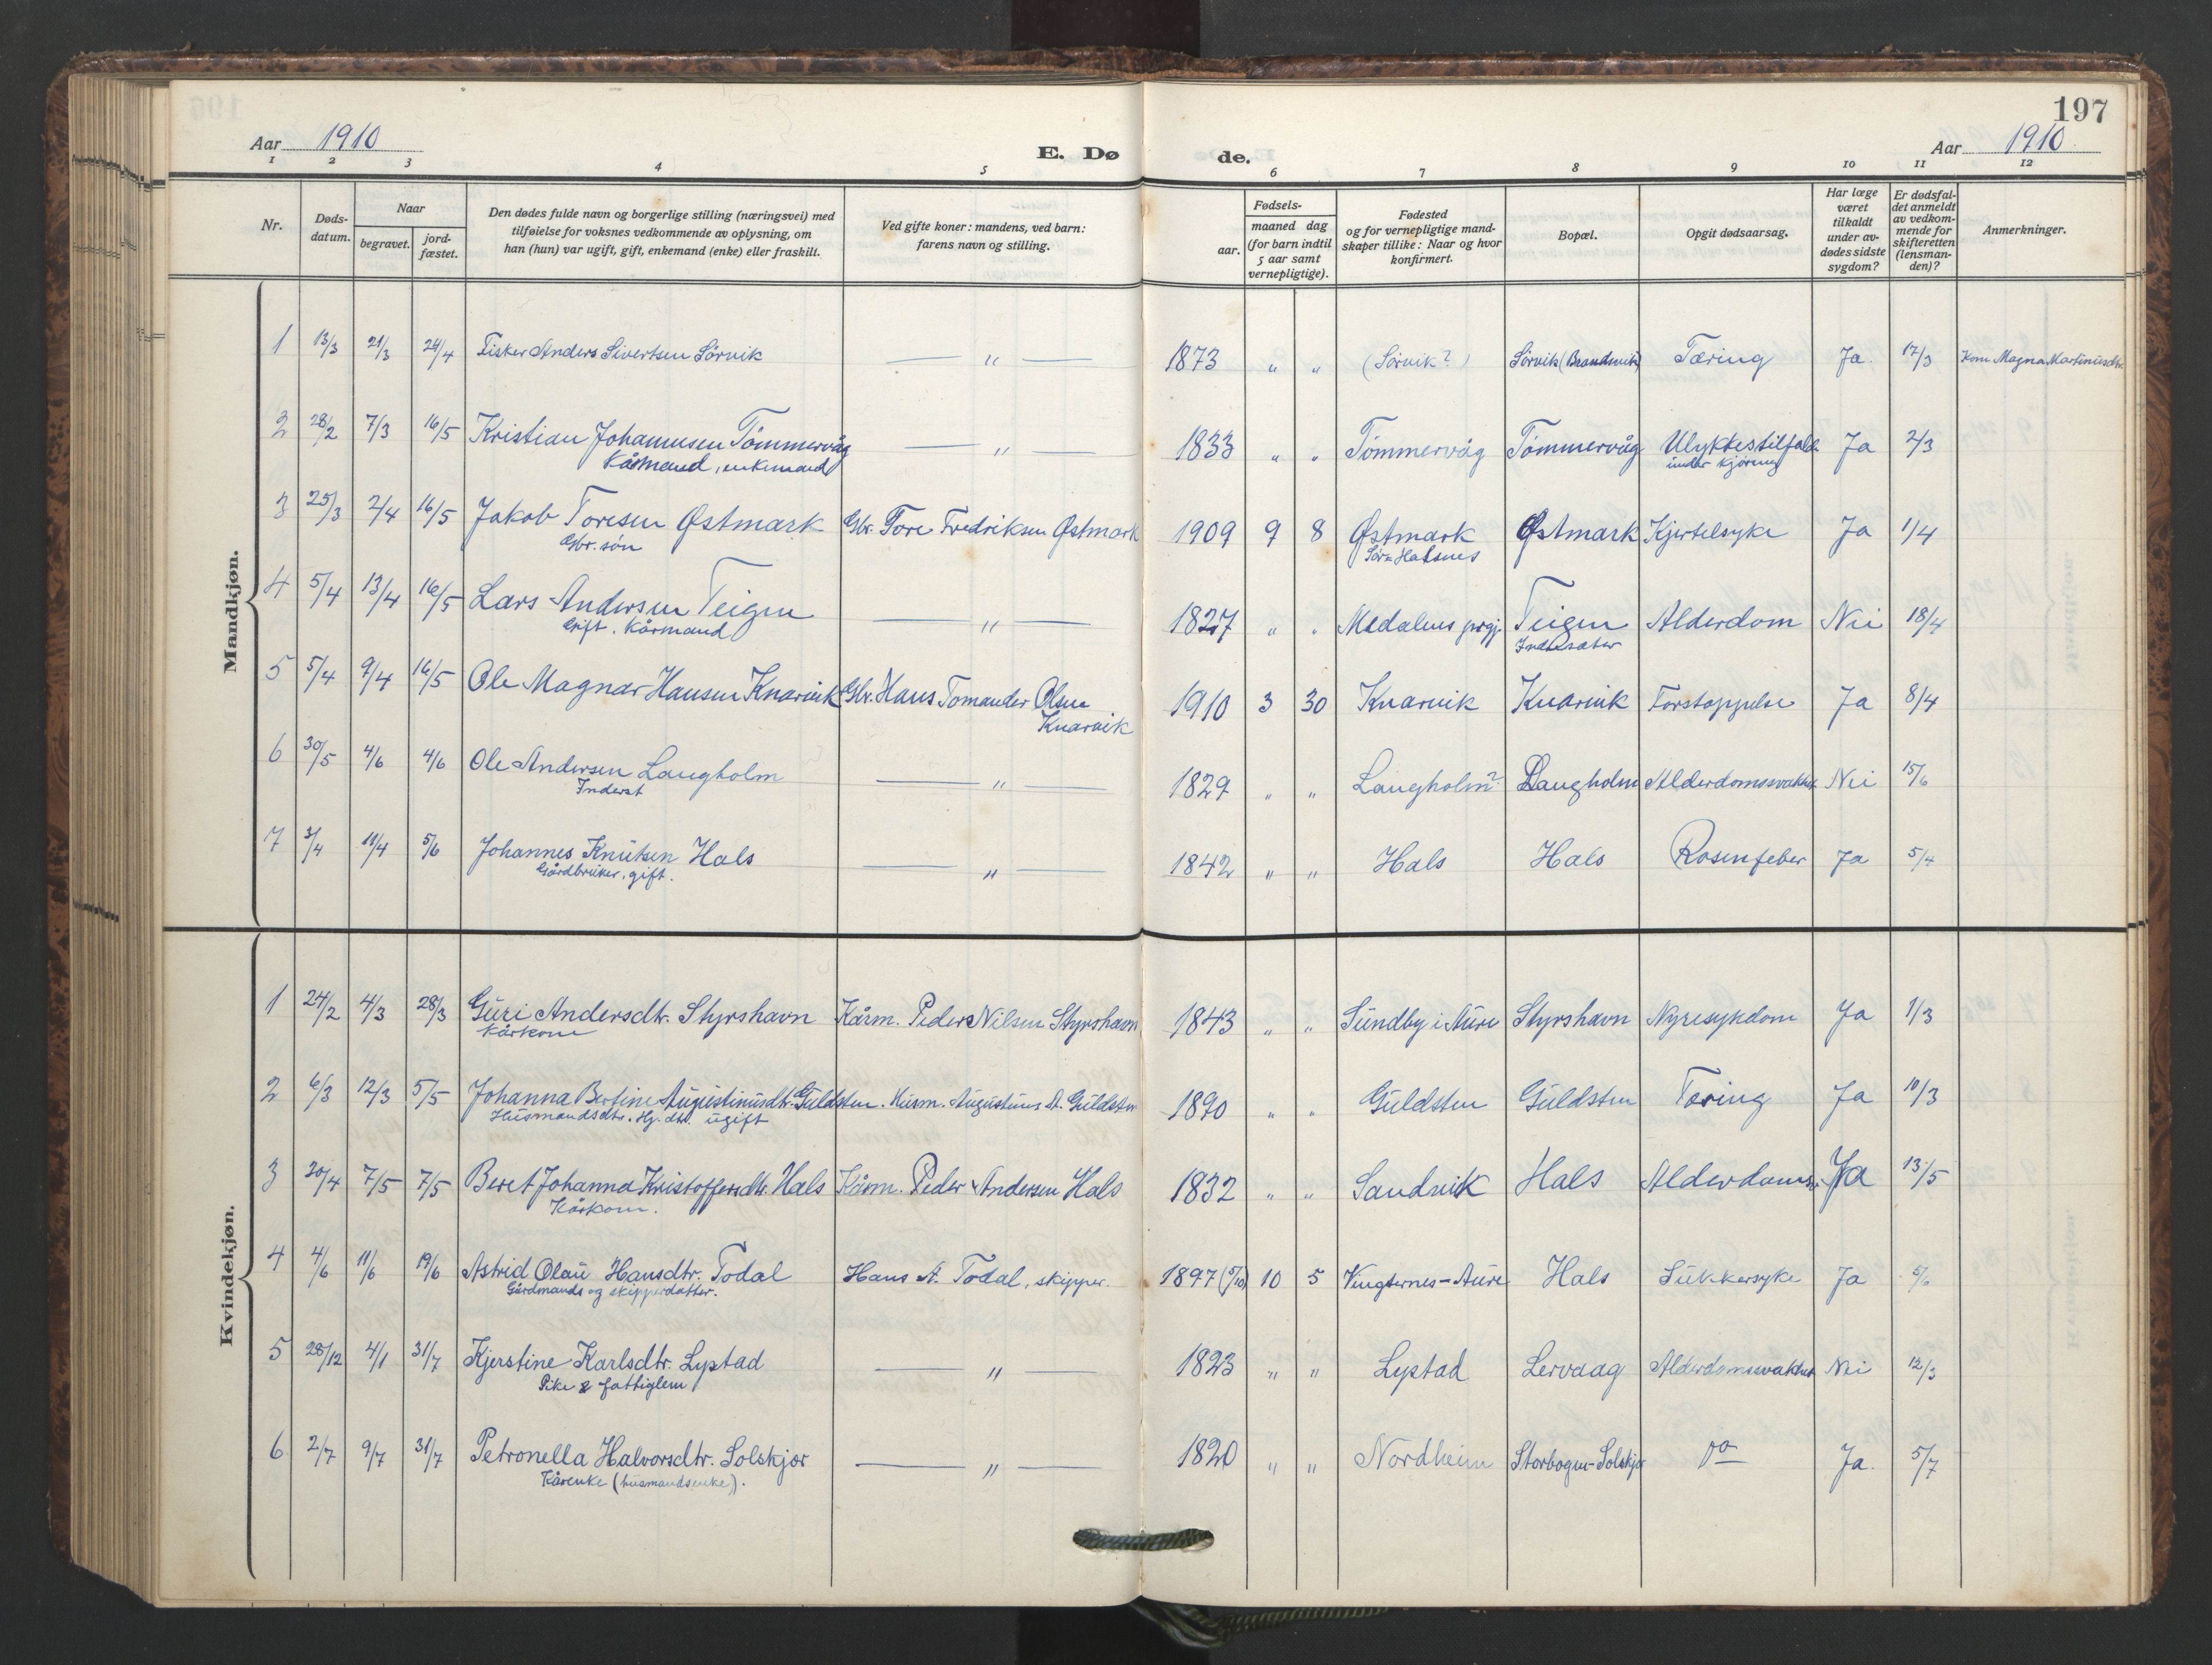 197
Aar 1910
E. Dø de.
Aar 1910
1 2 3 4 5 6 7 8 9 10 11 12
Nr.
Døds-
datum.
Naar
begravet.
jord-
fæstet.
Den dødes fulde navn og borgerlige stilling (næringsvei) med
tilføielse for voksnes vedkommende av oplysning, om
han (hun) var ugift, gift, enkemand (enke) eller fraskilt.
Ved gifte koner: mandens, ved barn:
farens navn og stilling.
Fødsels-
aar.
maaned dag
(for barn indtil
5 aar samt
vernepligtige).
Fødested
og for vernepligtige mand-
skaper tillike: Naar og hvor
konfirmert.
Bopæl.
Opgit dødsaarsag.
Har læge
været
tilkaldt
under av-
dødes sidste
sygdom?
Er dødsfal-
det anmeldt
av vedkom-
mende for
skifteretten
(lensman-
den)?
Anmerkninger.
Mandkjøn.
1 13/3 21/3 24/4 Fisker Anders Sivertsen Sörvik — " — 1873 " " (Sörvik?) Sörvik (Brandsvik) Tæring Ja. 17/3 Kone Magna Martinusdtr.
2 28/2 7/3 16/5 Kristian Johannesen Tömmervåg — " — 1833 " " Tömmervåg Tömmervåg Ulykkestilfælde Ja 2/3
Kårmand, enkemand
under kjöring
3 25/3 2/4 16/5 Jakob Toresen Østmark Gbr. Tore Fredriksen Østmark 1909 9 8 Østmark Østmark Kjertelsyke Ja 1/4
Gbr. sön
Sör-Halsnes
4 5/4 13/4 16/5 Lars Andersen Teigen — " — 1827 " " Medalens prgj. Teigen Alderdom Nei 18/4
Gift. Kårmand
5 5/4 9/4 16/5 Ole Magnar Hansen Knarvik Gbr. Hans Tomander Olsen 1910 3 30 Knarvik Knarvik Forstoppelse Ja 8/4
Knarvik
6 30/5 4/6 4/6 Ole Andersen Langholm — " — 1829 " " Langholm? Langholm Alderdomssvakhet Nei 15/6
Inderst
7 3/4 11/4 5/6 Johannes Knutsen Hals — " — 1842 " " Hals Hals Rosenfeber Ja 5/4
Gårdbruker, gift.
Kvindekjøn.
1 24/2 4/3 28/3 Guri Andersdtr. Styrshavn Kårm. Peder Nilsen Styrshavn 1843 " " Sundby i Aure Styrshavn Nyresykdom Ja 1/3
Kårkone
2 6/3 12/3 5/5 Johanna Bertine Augustinusdtr. Guldsten. Husm. Augustinus A. Guldsten 1890 " " Guldsten Guldsten Tæring Ja 10/3
Husmandsdtr. Hj. dtr. ugift
3 20/4 7/5 7/5 Beret Johanna Kristoffersdtr. Hals Kårm. Peder Andersen Hals 1832 " " Sandvik Hals Ja 13/5
Kårkone.
4 4/6 11/6 19/6 Astrid Olau Hansdtr. Todal Hans A. Todal, skipper. 1897 (5/10) 10 5 Vingsternes-Aure Hals Sukkersyke Ja 5/6
Gårdmands og skipperdatter.
5 28/12 4/1 31/7 Kjerstine Karlsdtr. Lystad — " — 1823 " " Lystad Lervaag Alderdomssvakhet Nei 12/3
Pike & fattiglem
6 2/7 9/7 31/7 Petronella Halvorsdtr. Solskjør — " — 1820 " " Nordheim Storbogen-Solskjør Do Ja. 5/7
Kårenke (husmandsenke).